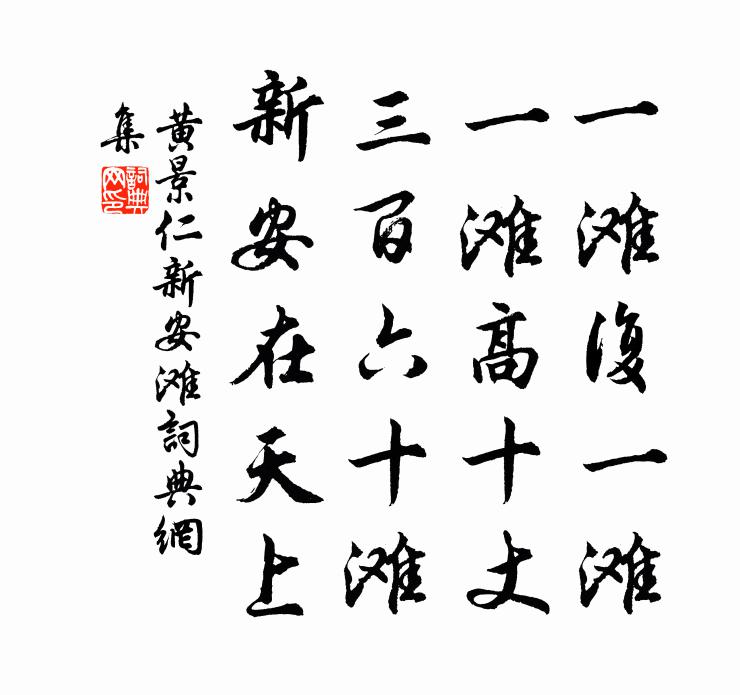 一滩復一滩
一滩高十丈
三百六十滩
新安在天上
黃景仁新安滩詞典網
集
詞典
网印